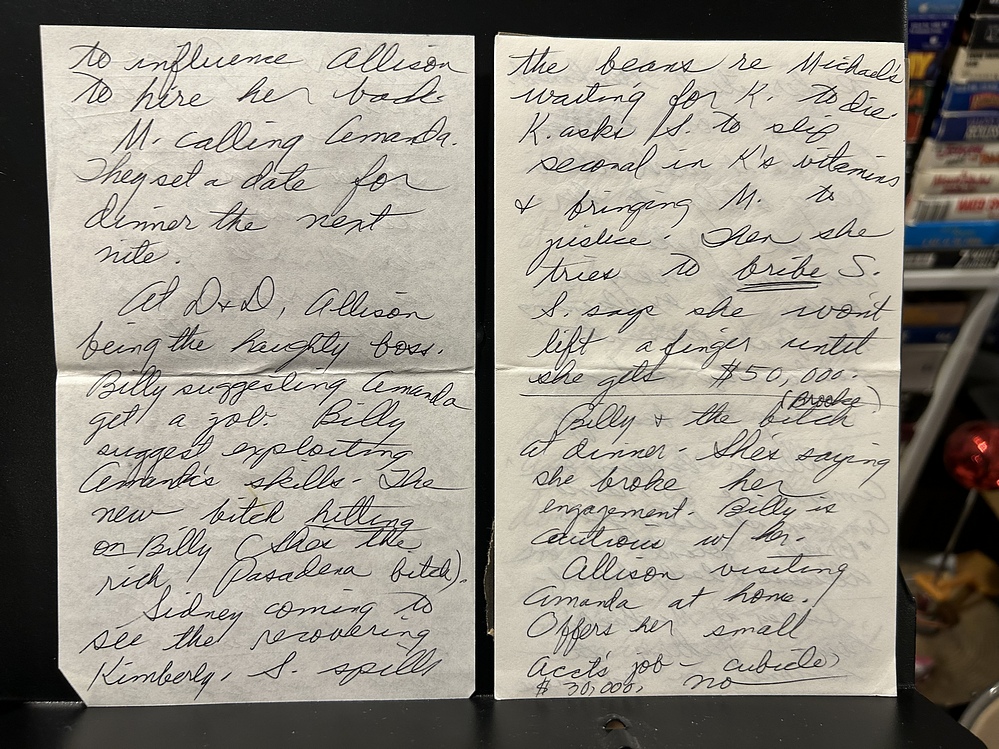 to influence Allison
to hire her back.
M. calling Amanda.
They set a date for
dinner the next
nite.
At D+D, Allison
being the haughty boss.
Billy suggesting Amanda
get a job. Billy
suggest exploiting
Amanda's skills - The
new bitch hitting
on Billy (She's the
rich, Pasadena bitch).
Sidney coming to
see the recovering
Kimberly. S. spills
the beans re Michael's
waiting for K. to die.
K. asks S. to slip
second in K's vitamins
& bringing M. to
justice. Then she
tries to bribe S.
S. says she won't
lift a finger until
she gets $50,000.
(Brooke)
Billy & the bitch
at dinner - She's saying
she broke her
engagement. Billy is
cautious w/ her.
Allison visiting
Amanda at home.
Offers her small
acct's job - cubicle,
$30,000. no